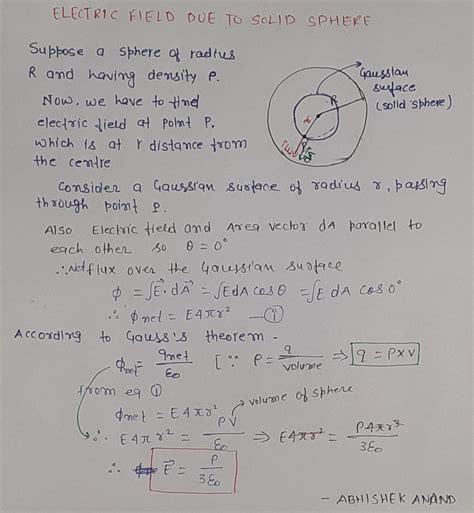 ELECTRIC FIELD DUE TO SOLID SPHERE
Suppose a sphere of radius
R and having density ρ.
Now, we have to find
electric field at point P.
which is at r distance from
the centre
Gaussian
surface
(solid sphere)
R
r
Consider a Gaussian surface of radius r, passing
through point P.
Also Electric field and Area vector dA parallel to
each other so θ = 0°
∴ Net flux over the Gaussian surface
ϕ = ∫E⃗.dA⃗ = ∫EdA cosθ = ∫E dA cos0°
∴ ϕnet = E4πr² —①
According to Gauss's theorem -
ϕnet = qnet/ε₀ [∵ ρ = q/volume ⇒ q = ρ×v
from eq ①
ϕnet = E4πr² volume of sphere
∴ E4πr² = ρV/ε₀ ⇒ E4πr² = ρ4πr³/3ε₀
∴ E⃗ = ρ/3ε₀
- ABHISHEK ANAND